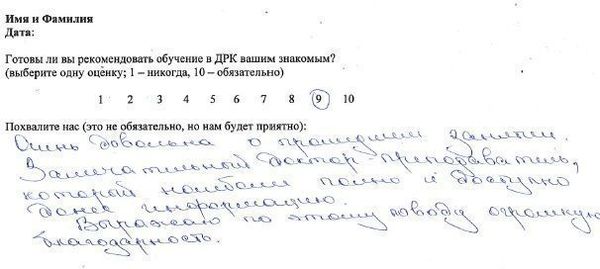 Имя и Фамилия
Дата:
Готовы ли вы рекомендовать обучение в ДРК вашим знакомым?
(выберите одну оценку; 1 – никогда, 10 – обязательно)
1 2 3 4 5 6 7 8 9 10
Похвалите нас (это не обязательно, но нам будет приятно):
Очень довольна о прошедшем занятии.
Замечательный доктор-преподаватель,
который наиболее полно и доступно
донес информацию.
Выражаю по этому поводу огромную
благодарность.